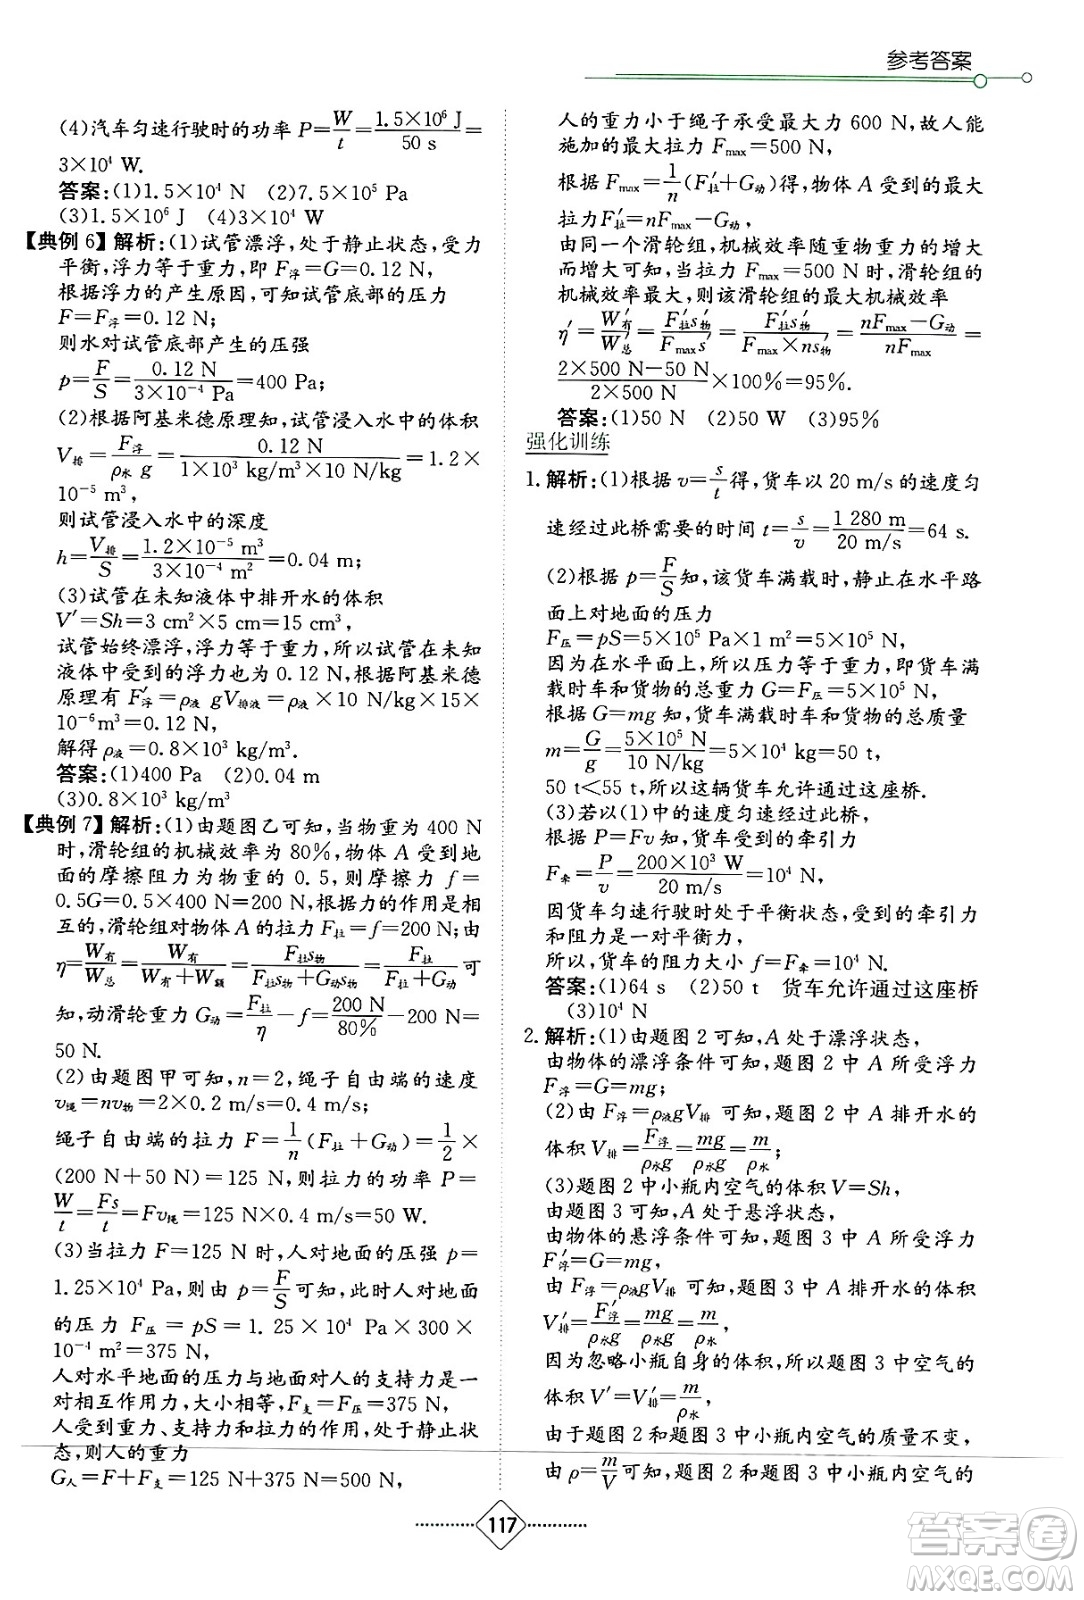 参考答案
(4)汽车匀速行驶时的功率 P=W/t=1.5×10⁶ J/50 s=
3×10⁴ W.
答案:(1)1.5×10⁴ N (2)7.5×10⁵ Pa
(3)1.5×10⁶ J (4)3×10⁴ W
【典例 6】解析:(1)试管漂浮,处于静止状态,受力
平衡,浮力等于重力,即 F浮=G=0.12 N,
根据浮力的产生原因,可知试管底部的压力
F=F浮=0.12 N,
则水对试管底部产生的压强
p=F/S=0.12 N/3×10⁻⁴ Pa=400 Pa;
(2)根据阿基米德原理知,试管浸入水中的体积
V排=F浮/ρ水 g=0.12 N/1×10³ kg/m³×10 N/kg=1.2×
10⁻⁵ m³,
则试管浸入水中的深度
h=V排/S=1.2×10⁻⁵ m³/3×10⁻⁴ m²=0.04 m;
(3)试管在未知液体中排开水的体积
V′=Sh=3 cm²×5 cm=15 cm³,
试管始终漂浮,浮力等于重力,所以试管在未知
液体中受到的浮力也为 0.12 N,根据阿基米德
原理有 F′浮=ρ液 gV排液=ρ液×10 N/kg×15×
10⁻⁶m³=0.12 N,
解得 ρ液=0.8×10³ kg/m³.
答案:(1)400 Pa (2)0.04 m
(3)0.8×10³ kg/m³
【典例 7】解析:(1)由题图乙可知,当物重为 400 N
时,滑轮组的机械效率为 80%,物体 A 受到地
面的摩擦阻力为物重的 0.5,则摩擦力 f=
0.5G=0.5×400 N=200 N,根据力的作用是相
互的,滑轮组对物体A的拉力 F拉=f=200 N,由
η=W有/W总=W有/W有+W额=F拉s物/F拉s物+G动s物=F拉/F拉+G动可
知,动滑轮重力 G动=F拉/η-F拉=200 N/80%-200 N=
50 N.
(2)由题图甲可知,n=2,绳子自由端的速度
v绳=nv物=2×0.2 m/s=0.4 m/s;
绳子自由端的拉力 F=1/n(F拉+G动)=1/2×
(200 N+50 N)=125 N,则拉力的功率 P=
W/t=Fs/t=Fv绳=125 N×0.4 m/s=50 W.
(3)当拉力 F=125 N 时,人对地面的压强 p=
1.25×10⁴ Pa,则由 p=F/S可知,此时人对地面
的压力 F压=pS=1.25×10⁴ Pa×300×
10⁻⁴ m²=375 N,
人对水平地面的压力与地面对人的支持力是一
对相互作用力,大小相等,F支=F压=375 N,
人受到重力、支持力和拉力的作用,处于静止状
态,则人的重力
G人=F+F支=125 N+375 N=500 N,
人的重力小于绳子承受最大力 600 N,故人能
施加的最大拉力 Fmax=500 N,
根据 Fmax=1/n(F′拉+G动)得,物体 A 受到的最大
拉力F′拉=nFmax-G动,
由同一个滑轮组,机械效率随重物重力的增大
而增大可知,当拉力 Fmax=500 N 时,滑轮组的
机械效率最大,则该滑轮组的最大机械效率
η′=W′有/W′总=F′拉s′物/Fmaxs′=F′拉s′物/Fmax×ns′物=nFmax-G动/nFmax=
2×500 N-50 N/2×500 N×100%=95%.
答案:(1)50 N (2)50 W (3)95%
强化训练
1.解析:(1)根据 v=s/t得,货车以 20 m/s 的速度匀
速经过此桥需要的时间 t=s/v=1 280 m/20 m/s=64 s.
(2)根据 p=F/S知,该货车满载时,静止在水平路
面上对地面的压力
F压=pS=5×10⁵ Pa×1 m²=5×10⁵ N,
因为在水平面上,所以压力等于重力,即货车满
载时车和货物的总重力 G=F压=5×10⁵ N,
根据 G=mg 知,货车满载时车和货物的总质量
m=G/g=5×10⁵ N/10 N/kg=5×10⁴ kg=50 t,
50 t<55 t,所以这辆货车允许通过这座桥.
(3)若以(1)中的速度匀速经过此桥,
根据 P=Fv 知,货车受到的牵引力
F牵=P/v=200×10³ W/20 m/s=10⁴ N,
因货车匀速行驶时处于平衡状态,受到的牵引力
和阻力是一对平衡力,
所以,货车的阻力大小 f=F牵=10⁴ N.
答案:(1)64 s (2)50 t 货车允许通过这座桥
(3)10⁴ N
2.解析:(1)由题图 2 可知,A 处于漂浮状态,
由物体的漂浮条件可知,题图 2 中 A 所受浮力
F浮=G=mg;
(2)由 F浮=ρ液gV排 可知,题图 2 中 A 排开水的
体积 V排=F浮/ρ水g=mg/ρ水g=m/ρ水;
(3)题图 2 中小瓶内空气的体积 V=Sh,
由题图 3 可知,A处于悬浮状态,
由物体的悬浮条件可知,题图 3 中 A 所受浮力
F′浮=G=mg,
由 F浮=ρ液gV排 可知,题图 3 中 A 排开水的体积
V′排=F′浮/ρ水g=mg/ρ水g=m/ρ水,
因为忽略小瓶自身的体积,所以题图 3 中空气的
体积 V′=V′排=m/ρ水,
由于题图 2 和题图 3 中小瓶内空气的质量不变,
由 ρ=m/V可知,题图 2 和题图 3 中小瓶内空气的
117
答案卷
MXQE.COM